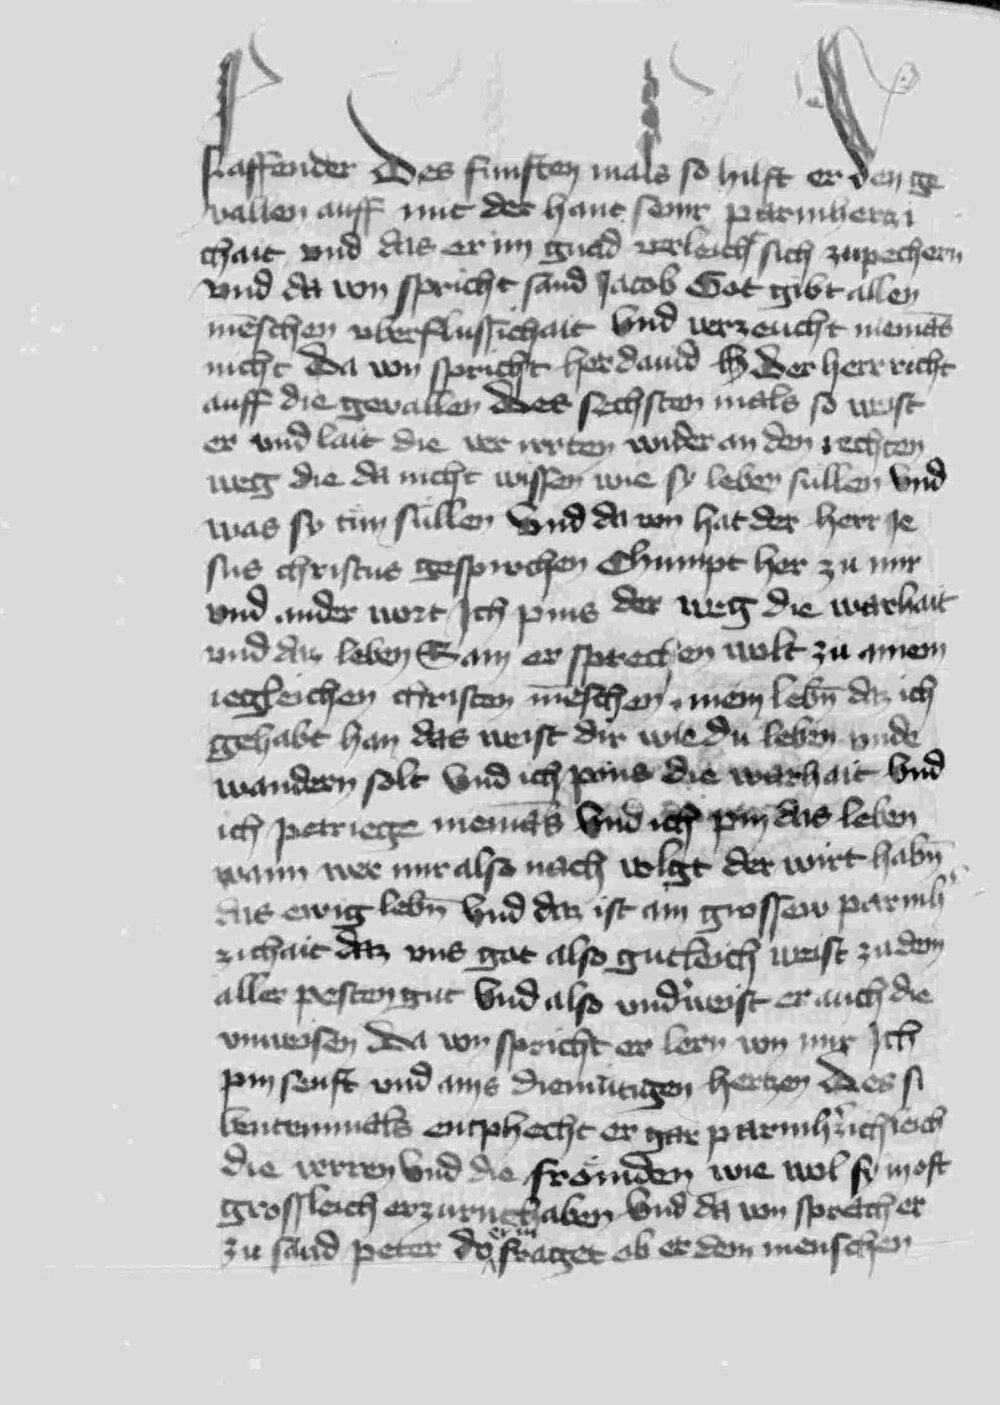 slaffender Des funften mals so hilft er den ge
vallen auff mit der hant seinr parmherczi
chait vnd das er im gnad verleich sich zupechern
vnd da von spricht sand Jacob Got gibt allen
mēschen vberflussichait Vnd verzeucht niemās
nicht Da von spricht her dauid Der herr richt
auff die gevallen Des sechsten mals so weist
er vnd lait die ver irrten wider an den rechten
weg die da nicht wissen wie sy leben sullen Vnd
was sy tun sullen Vnd da von hat der herr Je
sus christus gesprochen Chumpt her zu mir
vnd ander wort Ich pins der weg die warhait
vnd daz leben Sam er sprechen wolt zu ainem
iegleichen christen mēschen mein lebn̄ daz ich
gehabt han das weist dir wie du leben vnde
wandern solt Vnd ich pins die warhait Vnd
ich petriege niemās Vnd ich pin das leben
wann wer mir also nach volgt der wirt habn̄
das ewig lebn̄ Vnd daz ist ain grossew parmh
zichait daz vns got also gutleich weist zu dem
aller pesten gut Vnd also vnderweist er auch die
vnweisen Da von spricht er lern von mir Ich
pin senft vnd ains diemutigen herczen Des si
bentenmals enphecht er gar parmhzichleich
die verren Vnd die frömden wie wol sy in oft
grossleich erzurnet haben Vnd da von sprach er
zu sand peter do er in fraget ob er dem menschen